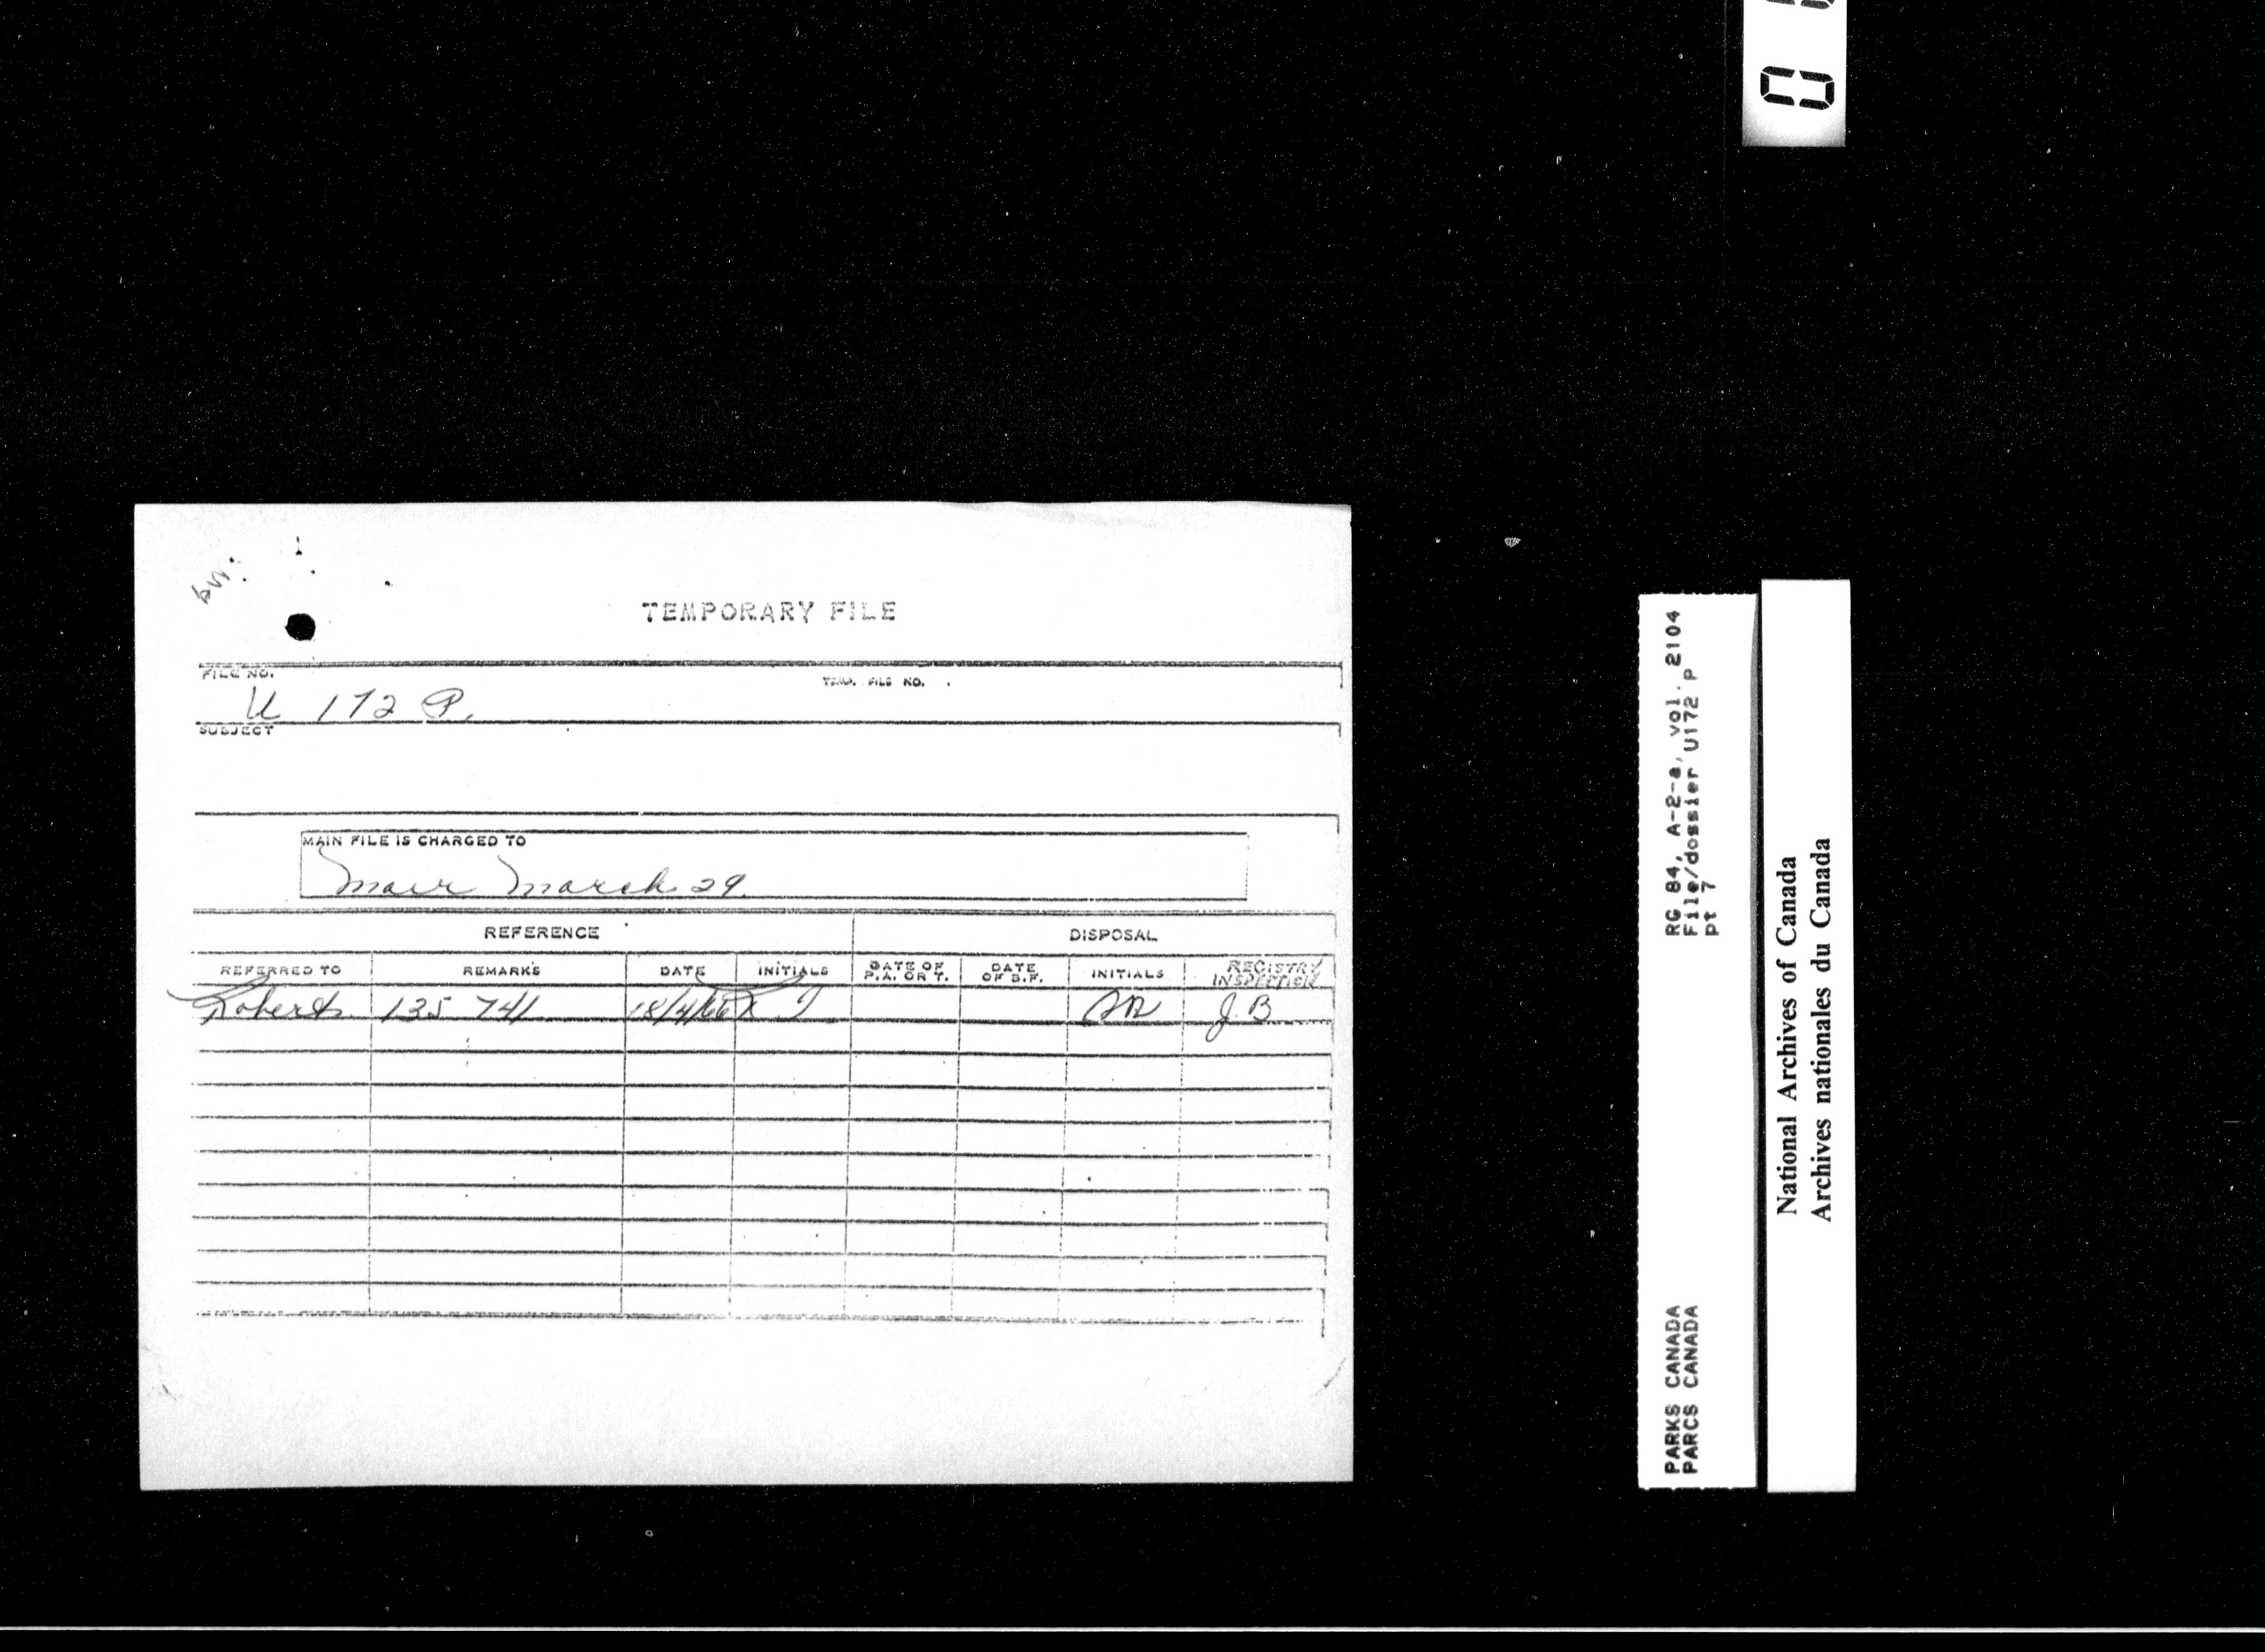 TEMPORARY FILE
FILE NO. TEMP. FILE NO.
U 172 P.
SUBJECT
MAIN FILE IS CHARGED TO
Mair March 29.
REFERENCE DISPOSAL
REFERRED TO REMARKS DATE INITIALS DATE OF P.A. OR T. DATE OF B.F. INITIALS REGISTRY INSPECTION
Roberts 135 741 18/4/66 J.B
RG 84, A-2-a, vol. 2104
File/dossier U172 P
pt 7
PARKS CANADA
PARCS CANADA
National Archives of Canada
Archives nationales du Canada